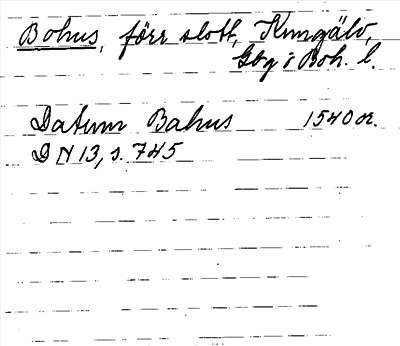 Bohus, förr slott, Kungälv,
Gbg i Boh. l.
Datum Bahus 1540 or.
DN 13, s. 745